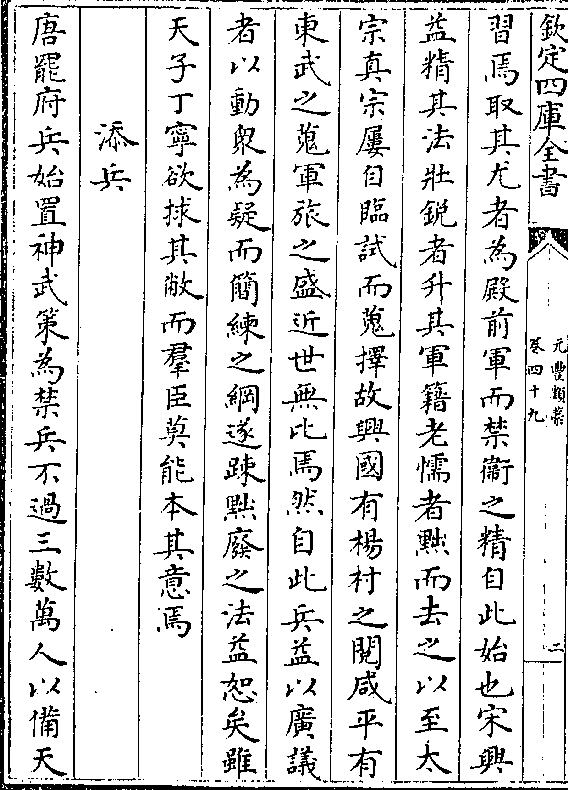 欽定四庫全書
元豐類藁
卷四十九
二
習焉取其尤者為殿前軍而禁衞之精自此始也宋興
益精其法壯銳者升其軍籍老懦者黜而去之以至太
宗真宗屢自臨試而蒐擇故興國有楊村之閱咸平有
東武之蒐軍旅之盛近世無比焉然自此兵益以廣議
者以動衆為疑而簡練之綱遂踈黜廢之法益恕矣雖
天子丁寧欲捄其敝而羣臣莫能本其意焉
添兵
唐罷府兵始置神武策為禁兵不過三數萬人以備天